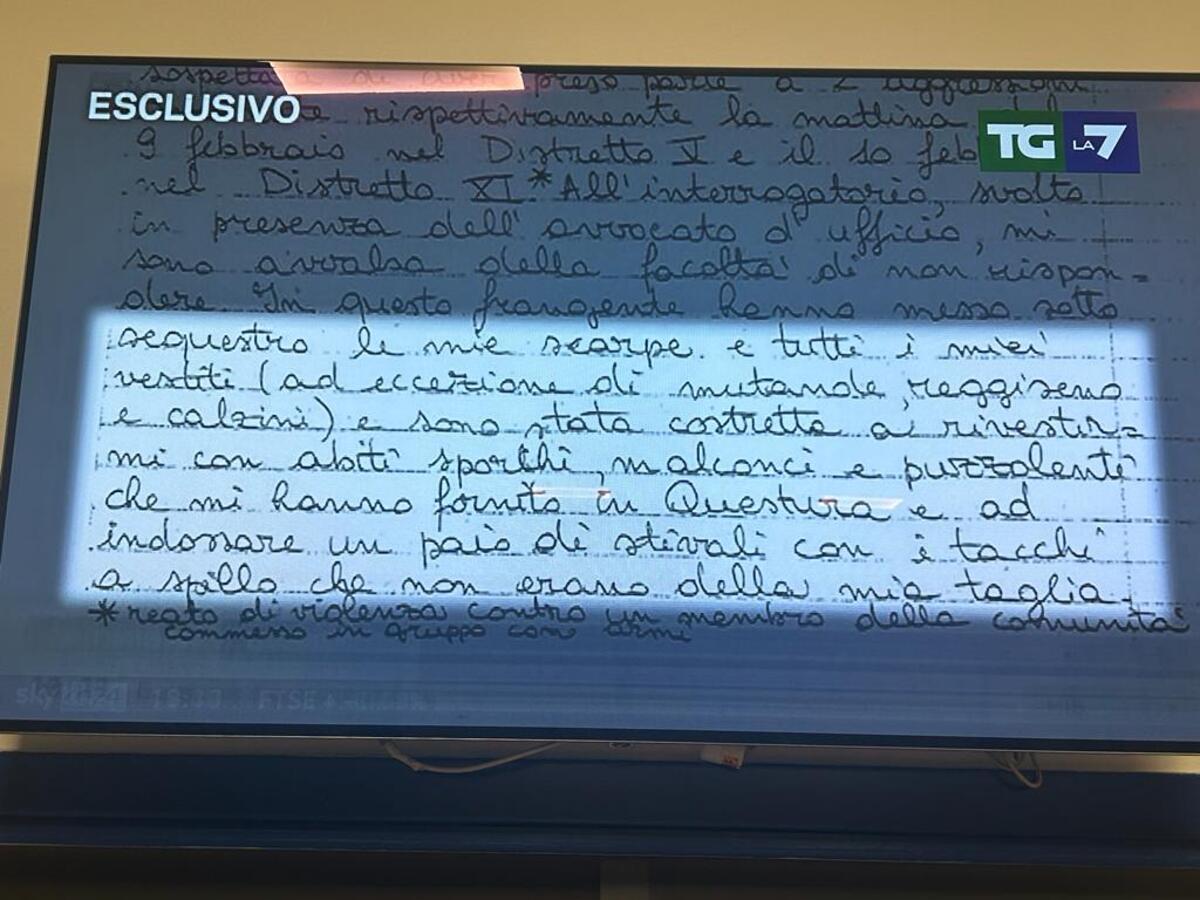 sospettata di aver preso parte a 2 aggressioni
ESCLUSIVO
rispettivamente la mattina del
9 febbraio nel Distretto V e il 10 feb
TG LA7
nel Distretto XI * All'interrogatorio, svolto
in presenza dell'avvocato d'ufficio, mi
sono avvalsa della facoltà di non rispon=
dere. In questo frangente hanno messo sotto
sequestro le mie scarpe e tutti i miei
vestiti (ad eccezione di mutande, reggiseno
e calzini) e sono stata costretta a rivestir=
mi con abiti sporchi, malconci e puzzolenti
che mi hanno fornito in Questura e ad
indossare un paio di stivali con i tacchi
a spillo che non erano della mia taglia.
* reato di violenza contro un membro della comunità
commesso in gruppo con armi
sky